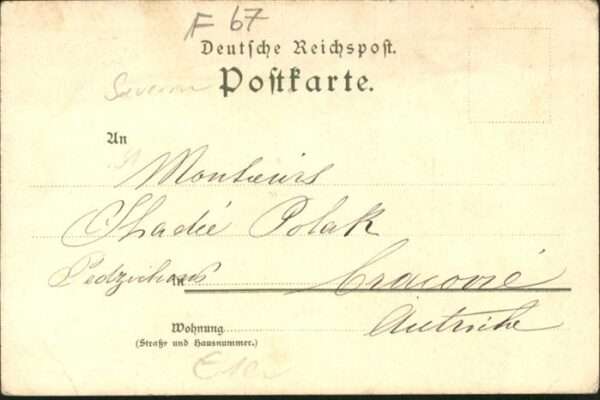 F 67
Deutsche Reichspost.
Postkarte.
An
Monsieurs
Thadié Polak
Pedzichow
in Cracovie
Autriche
Wohnung
(Straße und Hausnummer.)